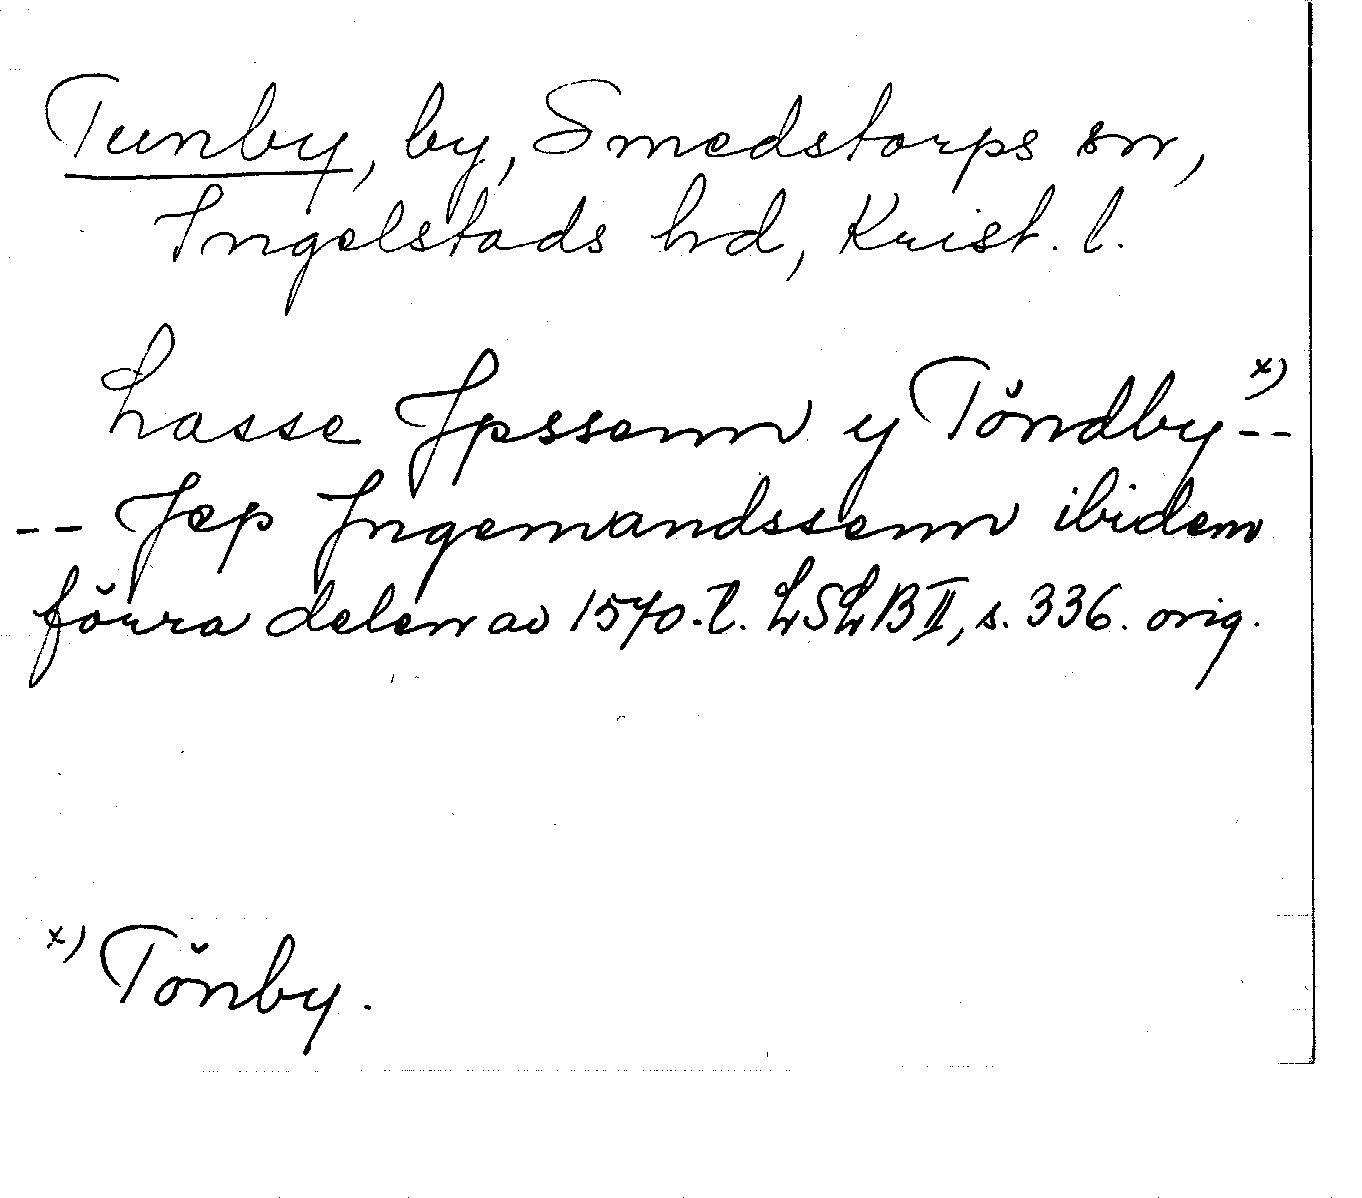 Tunby, by, Smedstorps sn,
Ingelstads hd, Krist. l.
Lasse Jpssenn y Töndby x) --
-- Jep Jngemandssenn ibidem
förra delen av 1570-t. LSLB II, s. 336. orig.
x) Tönby.